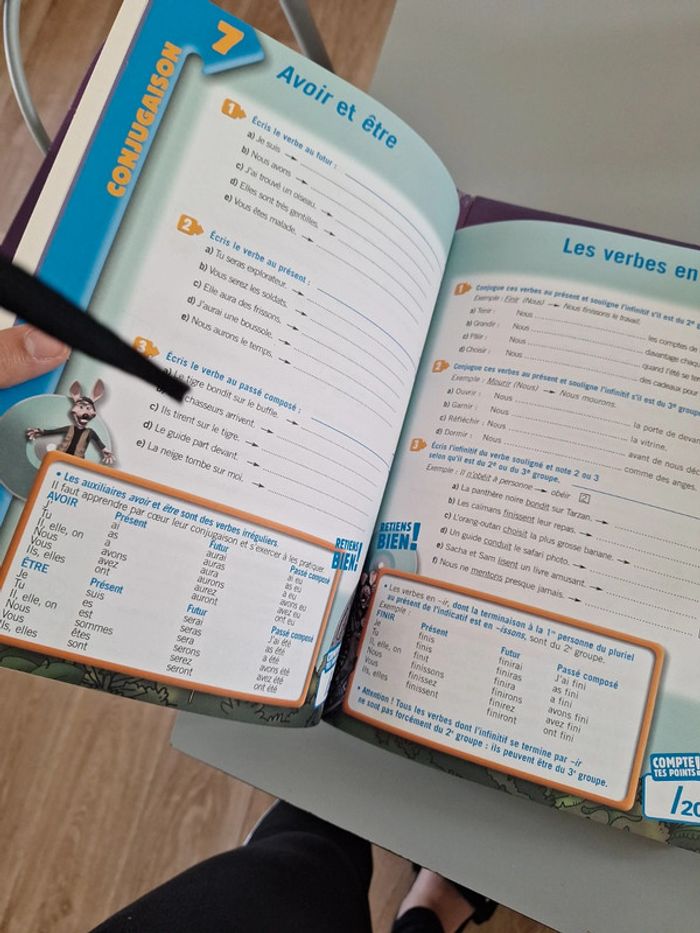 CONJUGAISON
7
Avoir et être
1 Écris le verbe au futur :
a) Je suis
b) Nous avons
c) J'ai trouvé un oiseau.
d) Elles sont très gentilles.
e) Vous êtes malade.
2 Écris le verbe au présent :
a) Tu seras explorateur.
b) Vous serez les soldats.
c) Elle aura des frissons.
d) J'aurai une boussole.
e) Nous aurons le temps.
3 Écris le verbe au passé composé :
a) Le tigre bondit sur le buffle.
chasseurs arrivent.
c) Ils tirent sur le tigre.
d) Le guide part devant.
e) La neige tombe sur moi.
• Les auxiliaires avoir et être sont des verbes irréguliers.
Il faut apprendre par cœur leur conjugaison et s'exercer à les pratiquer.
AVOIR Présent Futur Passé composé
J' ai aurai ai eu
Tu as auras as eu
Il, elle, on a aura a eu
Nous avons aurons avons eu
Vous avez aurez avez eu
Ils, elles ont auront ont eu
ÊTRE Présent Futur Passé composé
Je suis serai J'ai été
Tu es seras as été
Il, elle, on est sera a été
Nous sommes serons avons été
Vous êtes serez avez été
Ils, elles sont seront ont été
RETIENS
BIEN!
Les verbes en
1 Conjugue ces verbes au présent et souligne l'infinitif s'il est du 2e
Exemple : Finir (Nous) Nous finissons le travail.
a) Tenir : Nous les comptes de
b) Grandir : Nous davantage chaque
c) Plier : Nous quand l'été se
d) Choisir : Nous des cadeaux pour
2 Conjugue ces verbes au présent et souligne l'infinitif s'il est du 3e groupe.
Exemple : Mourir (Nous) Nous mourons.
a) Ouvrir : Nous la porte de
b) Garnir : Nous la vitrine.
c) Réfléchir : Nous avant de nous
d) Dormir : Nous comme des anges.
3 Écris l'infinitif du verbe souligné et note 2 ou 3
selon qu'il est du 2e ou du 3e groupe.
Exemple : Il n'obéit à personne obéir 2
a) La panthère noire bondit sur Tarzan.
b) Les caïmans finissent leur repas.
c) L'orang-outan choisit la plus grosse banane.
d) Un guide conduit le safari photo.
e) Sacha et Sam lisent un livre amusant.
f) Nous ne mentons presque jamais.
RETIENS
BIEN!
• Les verbes en -ir, dont la terminaison à la 1re personne du pluriel
au présent de l'indicatif est en -issons, sont du 2e groupe.
Exemple :
FINIR Présent Futur Passé composé
Je finis finirai J'ai fini
Tu finis finiras as fini
Il, elle, on finit finira a fini
Nous finissons finirons avons fini
Vous finissez finirez avez fini
Ils, elles finissent finiront ont fini
• Attention ! Tous les verbes dont l'infinitif se termine par -ir
ne sont pas forcément du 2e groupe : ils peuvent être du 3e groupe.
COMPTE
TES POINTS!
/20